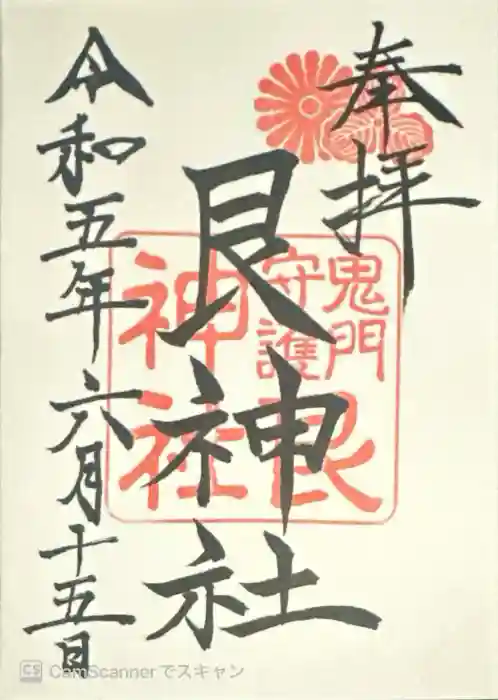 奉拝
鬼門
守護
艮
神社
艮神社
令和五年六月十五日
CS CamScannerでスキャン